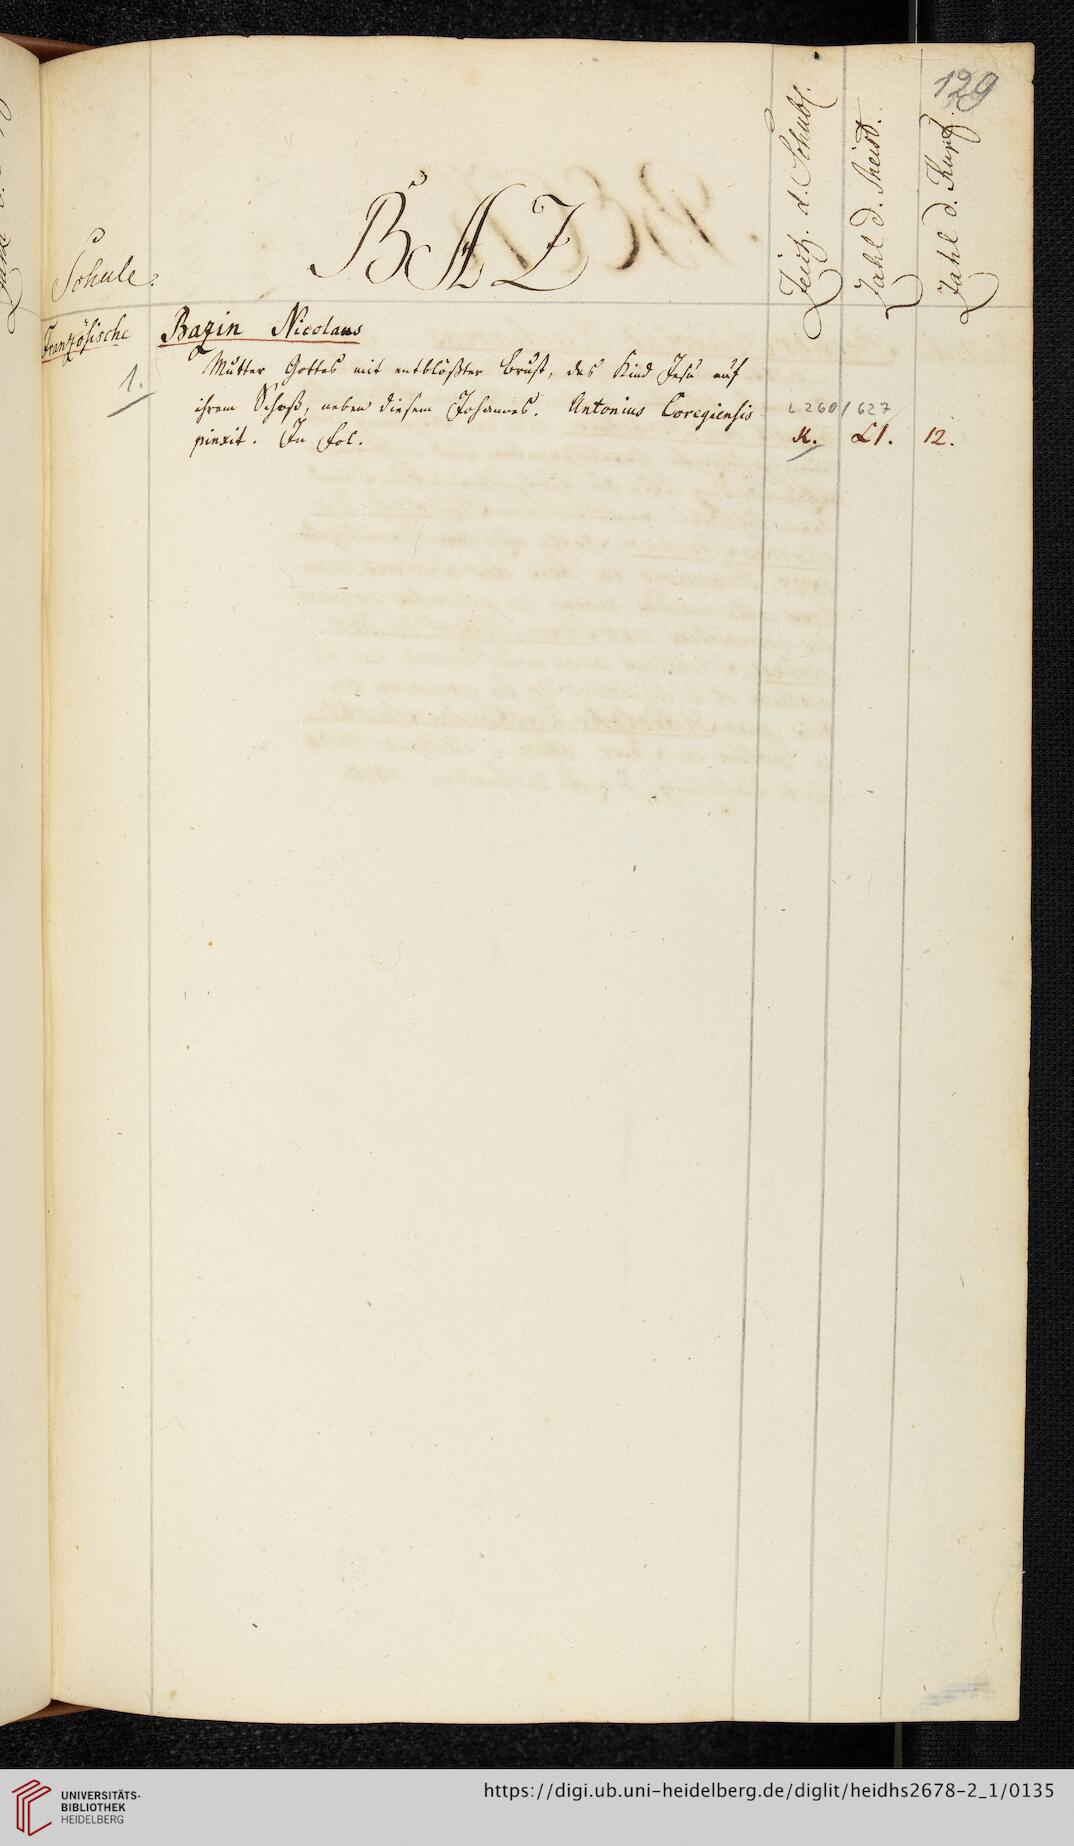 129
Zeich. d. Schubl.
Zahl d.
Zahl d. Kupf.
BAZ
Schule.
Französische
Bazin Nicolaus
1.
Mutter Gottes mit entblößter Brust, das Kind Jesu auf
ihrem Schoß, neben diesem Johannes. Antonius Coregiensis
pinxit. In fol.
L 260/627
K. 12.
UNIVERSITÄTS-
BIBLIOTHEK
HEIDELBERG
https://digi.ub.uni-heidelberg.de/diglit/heidhs2678-2_1/0135